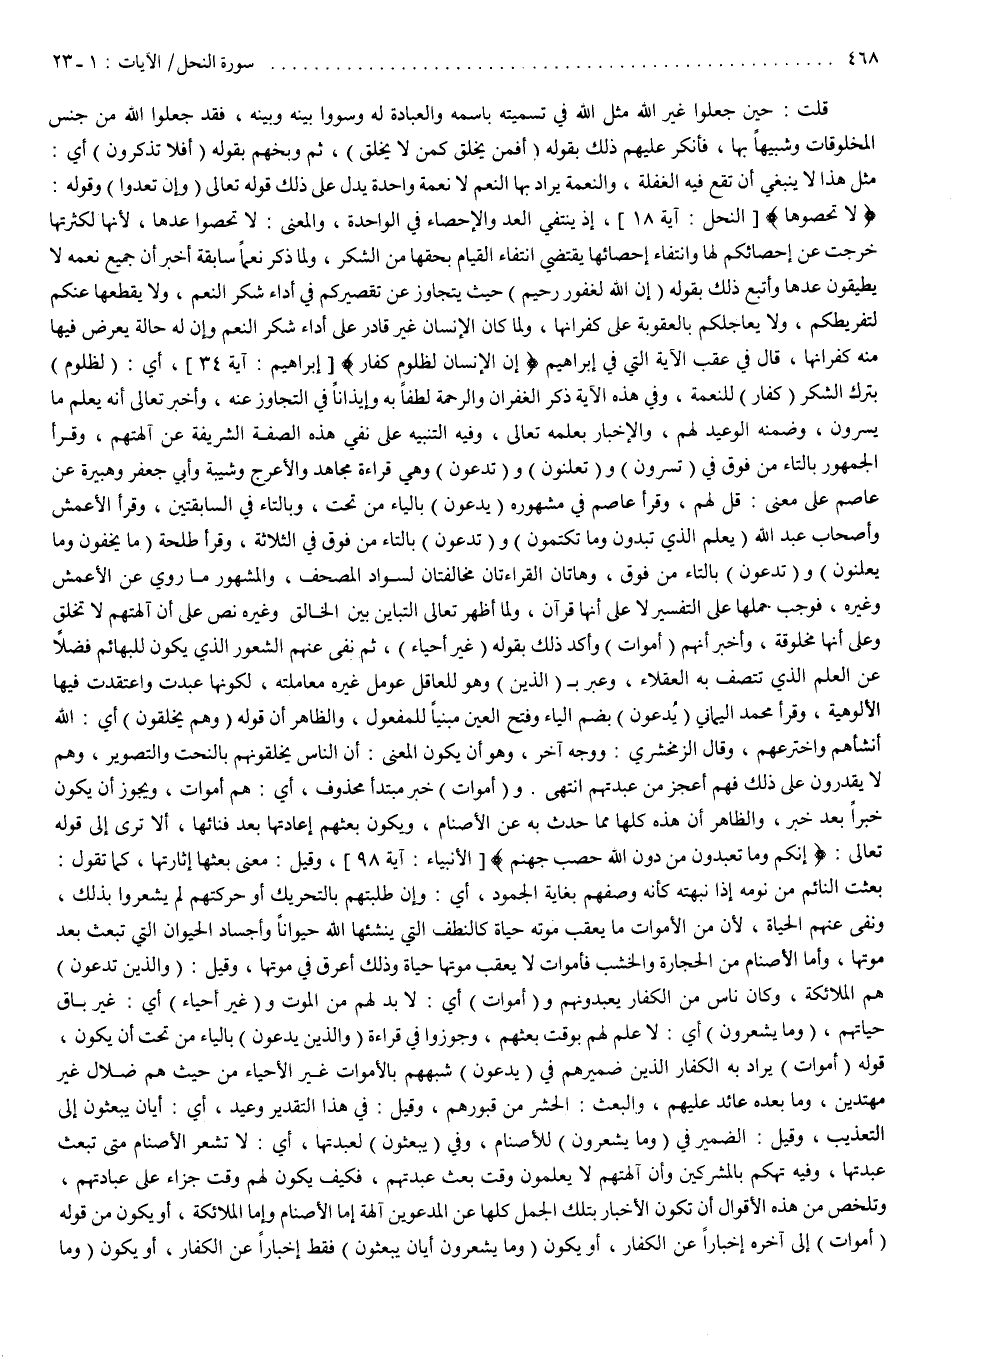 ٤٦٨ .................................................. سورة النحل/ الآيات : ١ - ٢٣
قلت : حين جعلوا غير الله مثل الله في تسميته باسمه والعبادة له وسووا بينه وبينه ، فقد جعلوا الله من جنس
المخلوقات وشبيهاً بها ، فأنكر عليهم ذلك بقوله ( أفمن يخلق كمن لا يخلق ) ، ثم وبخهم بقوله ( أفلا تذكرون ) أي :
مثل هذا لا ينبغي أن تقع فيه الغفلة ، والنعمة يراد بها النعم لا نعمة واحدة يدل على ذلك قوله تعالى ( وإن تعدوا ) وقوله :
﴿ لا تحصوها ﴾ [ النحل : آية ١٨ ] ، إذ ينتفي العد والإحصاء في الواحدة ، والمعنى : لا تحصوا عدها ، لأنها لكثرتها
خرجت عن إحصائكم لها وانتفاء إحصائها يقتضي انتفاء القيام بحقها من الشكر ، ولما ذكر نعماً سابقة أخبر أن جميع نعمه لا
يطيقون عدها وأتبع ذلك بقوله ( إن الله لغفور رحيم ) حيث يتجاوز عن تقصيركم في أداء شكر النعم ، ولا يقطعها عنكم
لتفريطكم ، ولا يعاجلكم بالعقوبة على كفرانها ، ولما كان الإنسان غير قادر على أداء شكر النعم وإن له حالة يعرض فيها
منه كفرانها ، قال في عقب الآية التي في إبراهيم ﴿ إن الإنسان لظلوم كفار ﴾ [ إبراهيم : آية ٣٤ ] ، أي : ( لظلوم )
بترك الشكر ( كفار ) للنعمة ، وفي هذه الآية ذكر الغفران والرحمة لطفاً به وإيذاناً في التجاوز عنه ، وأخبر تعالى أنه يعلم ما
يسرون ، وضمنه الوعيد لهم ، والإخبار بعلمه تعالى ، وفيه التنبيه على نفي هذه الصفة الشريفة عن آلهتهم ، وقرأ
الجمهور بالتاء من فوق في ( تسرون ) و ( تعلنون ) و ( تدعون ) وهي قراءة مجاهد والأعرج وشيبة وأبي جعفر وهبيرة عن
عاصم على معنى : قل لهم ، وقرأ عاصم في مشهوره ( يدعون ) بالياء من تحت ، وبالتاء في السابقتين ، وقرأ الأعمش
وأصحاب عبد الله ( يعلم الذي تبدون وما تكتمون ) و ( تدعون ) بالتاء من فوق في الثلاثة ، وقرأ طلحة ( ما يخفون وما
يعلنون ) و ( تدعون ) بالتاء من فوق ، وهاتان القراءتان مخالفتان لسواد المصحف ، والمشهور ما روي عن الأعمش
وغيره ، فوجب حملها على التفسير لا على أنها قرآن ، ولما أظهر تعالى التباين بين الخالق وغيره نص على أن آلهتهم لا تخلق
وعلى أنها مخلوقة ، وأخبر أنهم ( أموات ) وأكد ذلك بقوله ( غير أحياء ) ، ثم نفى عنهم الشعور الذي يكون للبهائم فضلاً
عن العلم الذي تتصف به العقلاء ، وعبر بـ ( الذين ) وهو للعاقل عومل غيره معاملته ، لكونها عبدت واعتقدت فيها
الألوهية ، وقرأ محمد اليماني ( يُدعون ) بضم الياء وفتح العين مبنياً للمفعول ، والظاهر أن قوله ( وهم يخلقون ) أي : الله
أنشأهم واخترعهم ، وقال الزمخشري : ووجه آخر ، وهو أن يكون المعنى : أن الناس يخلقونهم بالنحت والتصوير ، وهم
لا يقدرون على ذلك فهم أعجز من عبدتهم انتهى . و ( أموات ) خبر مبتدأ محذوف ، أي : هم أموات ، ويجوز أن يكون
خبراً بعد خبر ، والظاهر أن هذه كلها مما حدث به عن الأصنام ، ويكون بعثهم إعادتها بعد فنائها ، ألا ترى إلى قوله
تعالى : ﴿ إنكم وما تعبدون من دون الله حصب جهنم ﴾ [ الأنبياء : آية ٩٨ ] ، وقيل : معنى بعثها إثارتها ، كما تقول :
بعثت النائم من نومه إذا نبهته كأنه وصفهم بغاية الجمود ، أي : وإن طلبتهم بالتحريك أو حركتهم لم يشعروا بذلك ،
ونفى عنهم الحياة ، لأن من الأموات ما يعقب موته حياة كالنطف التي ينشئها الله حيواناً وأجساد الحيوان التي تبعث بعد
موتها ، وأما الأصنام من الحجارة والخشب فأموات لا يعقب موتها حياة وذلك أعرق في موتها ، وقيل : ( والذين تدعون )
هم الملائكة ، وكان ناس من الكفار يعبدونهم و ( أموات ) أي : لا بد لهم من الموت و ( غير أحياء ) أي : غير باق
حياتهم ، ( وما يشعرون ) أي : لا علم لهم بوقت بعثهم ، وجوزوا في قراءة ( والذين يدعون ) بالياء من تحت أن يكون ،
قوله ( أموات ) يراد به الكفار الذين ضميرهم في ( يدعون ) شبههم بالأموات غير الأحياء من حيث هم ضلال غير
مهتدين ، وما بعده عائد عليهم ، والبعث : الحشر من قبورهم ، وقيل : في هذا التقدير وعيد ، أي : أيان يبعثون إلى
التعذيب ، وقيل : الضمير في ( وما يشعرون ) للأصنام ، وفي ( يبعثون ) لعبدتها ، أي : لا تشعر الأصنام متى تبعث
عبدتها ، وفيه تهكم بالمشركين وأن آلهتهم لا يعلمون وقت بعث عبدتهم ، فكيف يكون لهم وقت جزاء على عبادتهم ،
وتلخص من هذه الأقوال أن تكون الأخبار بتلك الجمل كلها عن المدعوين آلهة إما الأصنام وإما الملائكة ، أو يكون من قوله
( أموات ) إلى آخره إخباراً عن الكفار ، أو يكون ( وما يشعرون أيان يبعثون ) فقط إخباراً عن الكفار ، أو يكون ( وما